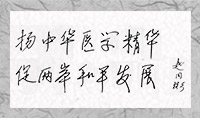 扬中华医学精华
促两岸和平发展